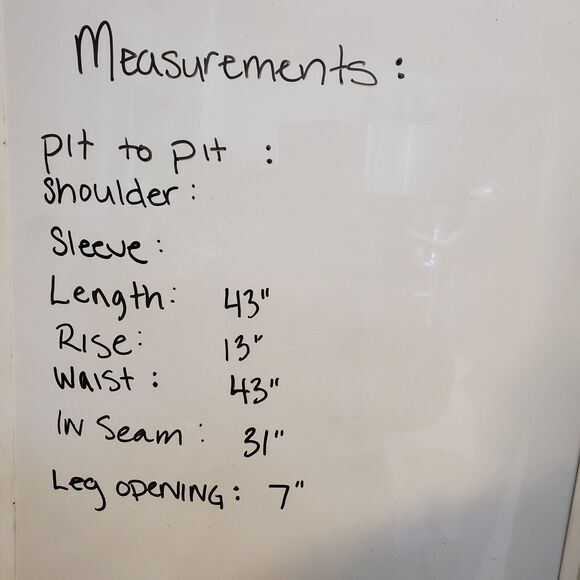 Measurements:
pit to pit :
Shoulder:
Sleeve:
Length: 43"
Rise: 13"
Waist: 43"
In Seam: 31"
Leg OPENING: 7"